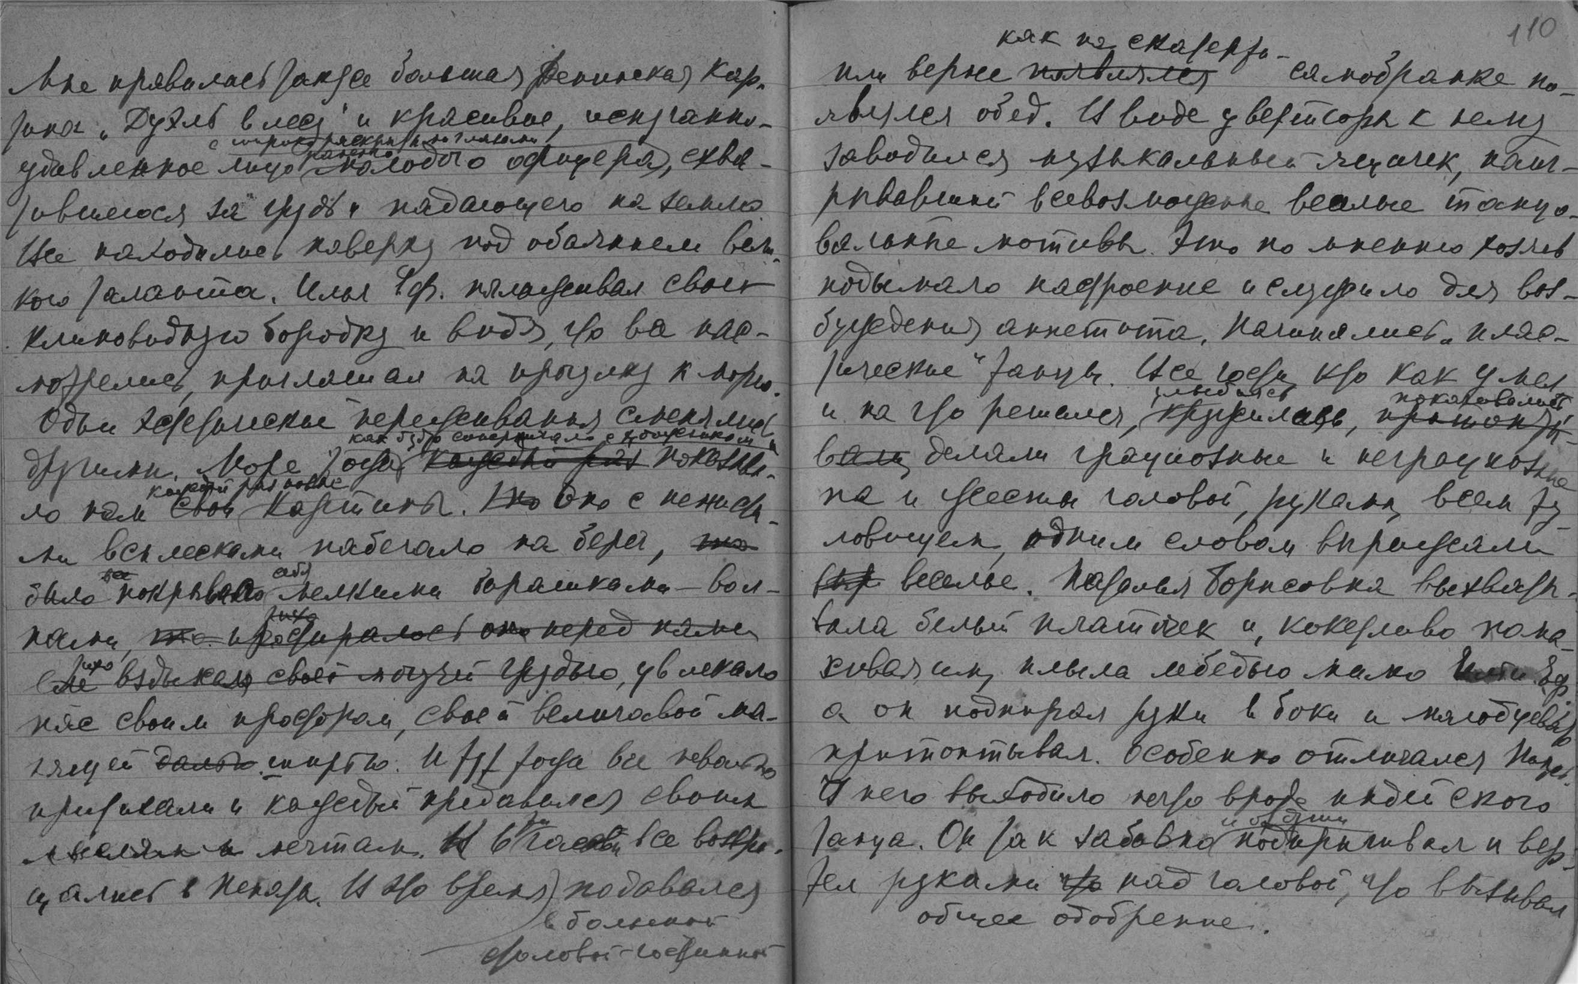 Мне нравилась также большая Репинская кар-
тина „Дуэль в лесу" и красивое, испуганно-
с широко раскрытыми глазами
удивленное лицо раненого молодого офицера, схва-
тившегося за грудь и падающего на землю.
Все находились наверху под обаянием вели-
кого таланта. Илья Еф. поглаживал свою
клиновидную бородку и видя, что все нас-
мотрелись, приглашал на прогулку к морю.
Одни эстетические переживания сменялись
другими. Море тогда каждый раз показыва-
как будто соперничало с художником и
ло нам каждый раз новые свои картины. Оно с пенисты-
ми всплесками набегало на берег, то
было все покрывало себя мелкими барашками – вол-
нами, то простиралось оно тихо перед нами
еле тихо вздыхая своей могучей грудью, увлекало
нас своим простором, своей величавой ма-
нящей далью ширью. И тут тогда все невольно
притихали и каждый предавался своим
мыслям и мечтам. В 6 часов все возвра-
щались в Пенаты. В это время подавался
в большой
столовой-гостинной
110
как на скатерти-
или вернее появлялся самобранке по-
являлся обед. В виде увертюры к нему
заводился музыкальный ящичек, наиг-
рывавший всевозможные веселые танцо-
вальные мотивы. Это по мнению хозяев
подымало настроение и служило для воз-
буждения аппетита. Начинались „плас-
тические" танцы. Все гости кто как умел
и на что решался, улыбаясь кружились, покачивались притопты-
вали делали грациозные и неграциозные
па и жесты головой, руками, всем ту-
ловищем, одним словом выражали
веселье. Наталья Борисовна выхваты-
вала белый платочек и, кокетливо пома-
хивая им, плыла лебедью мимо Ильи Еф.
а он подпирал руки в боки и молодцевато
притоптывал. Особенно отличался
У него выходило нечто вроде индейского
танца. Он так забавно подпрыгивал и вер-
тел руками над головой, что вызывал
общее одобрение.